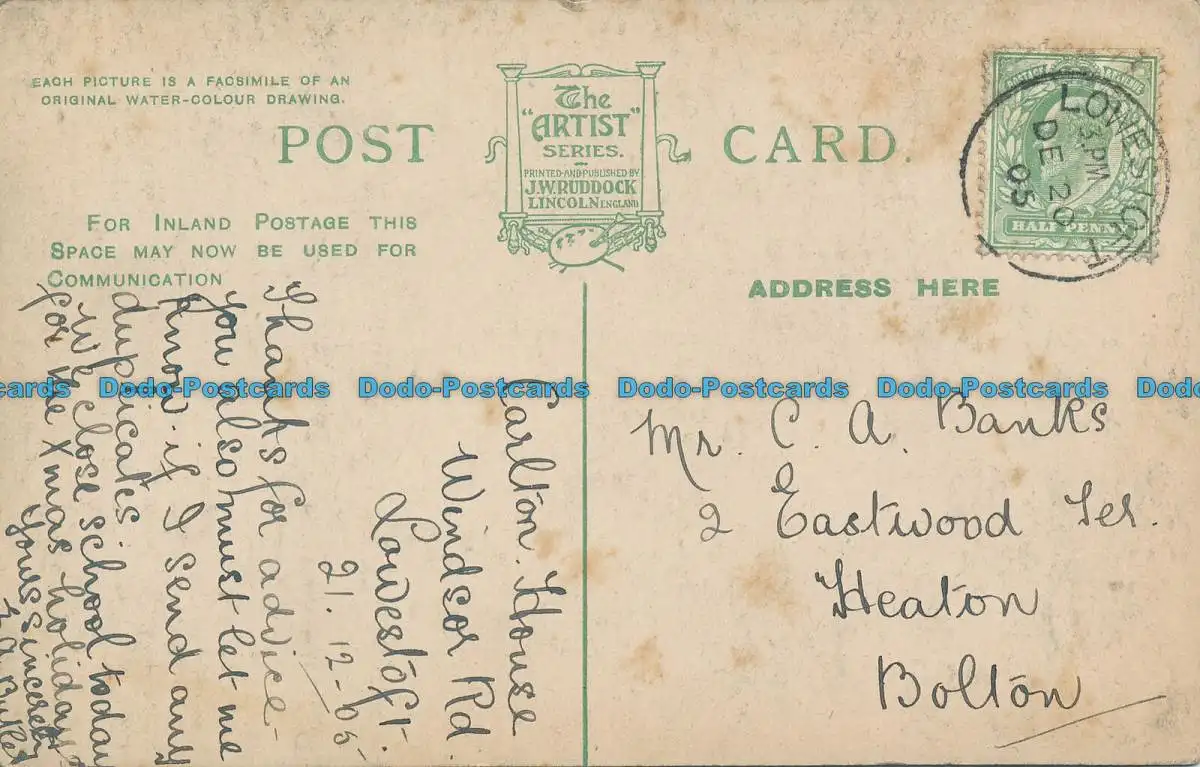 EACH PICTURE IS A FACSIMILE OF AN
ORIGINAL WATER-COLOUR DRAWING.
POST CARD.
The
"ARTIST"
SERIES.
PRINTED AND PUBLISHED BY
J.W. RUDDOCK
LINCOLN ENGLAND
FOR INLAND POSTAGE THIS
SPACE MAY NOW BE USED FOR
COMMUNICATION
ADDRESS HERE
LOWESTOFT
3.PM
DE 20
05
HALF PENNY
Carlton House
Windsor Rd.
Lowestoft.
21.12-05
Thanks for advice -
you also must let me
know if I send any
duplicates.
We close school today
for the Xmas holidays
Yours sincerely
Mr. C. A. Banks
2 Eastwood Ter.
Heaton
Bolton
Dodo-Postcards Dodo-Postcards Dodo-Postcards Dodo-Postcards